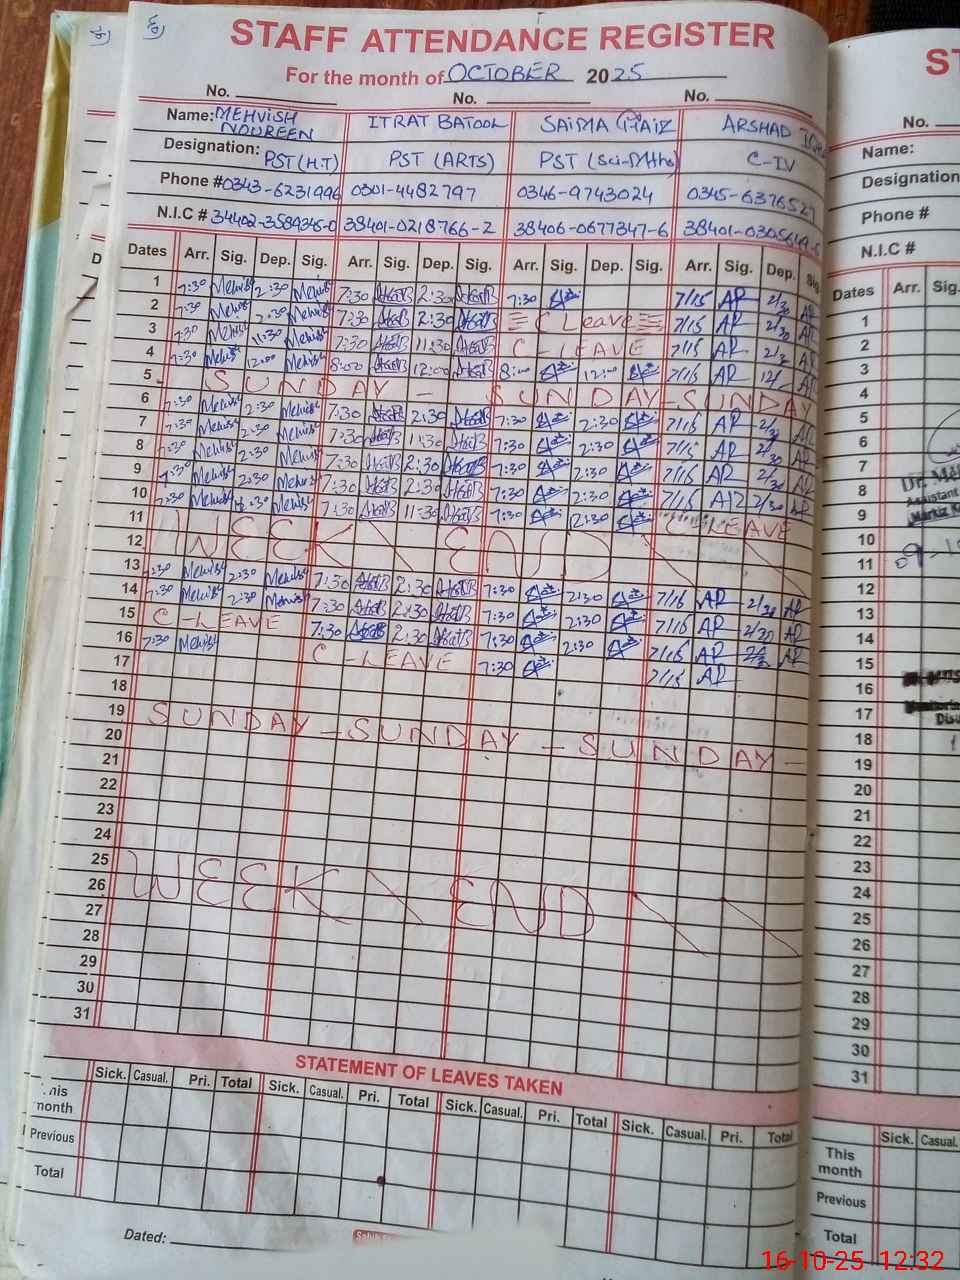 STAFF ATTENDANCE REGISTER
For the month of OCTOBER 2025
No. No. No.
Name: MEHVISH NOUREEN ITRAT BATOOL SAIMA ARSHAD
Designation: PST (H.T) PST (ARTS) PST (Sci-Mths) C-IV
Phone # 0343-6231996 0301-4482797 0346-9743024 0345-637652
N.I.C # 34402-3589345-0 38401-0218766-2 38406-0677347-6 38401-
Dates Arr. Sig. Dep. Sig. Arr. Sig. Dep. Sig. Arr. Sig. Dep. Sig. Arr. Sig. Dep. Sig.
1 7:30 Mehvish 2:30 Mehvish 7:30 2:30 7:30 7/15 AR 2/30 AR
2 7:30 Mehvish 2:30 Mehvish 7:30 2:30 C Leave 7/15 AR 2/30 AR
3 7:30 Mehvish 11:30 Mehvish 7:30 11:30 C-LEAVE 7/15 AR AR
4 7:30 Mehvish 12:00 Mehvish 8:00 12:00 8:00 12:00 7/15 AR AR
5 SUNDAY - SUNDAY - SUNDAY
6 7:30 Mehvish 2:30 Mehvish 7:30 2:30 7:30 2:30 7/15 AR 2/30 AR
7 7:30 Mehvish 2:30 Mehvish 7:30 7:30 2:30 7/15 AR 2/30 AR
8 7:30 Mehvish 2:30 Mehvish 7:30 2:30 7:30 2:30 7/15 AR 2/30 AR
9 7:30 Mehvish 2:30 Mehvish 7:30 2:30 7:30 2:30 7/15 AR 2/30 AR
10 7:30 Mehvish Mehvish 7:30 11:30 7:30 12:30 C LEAVE
11 WEEK END
12
13 7:30 Mehvish 2:30 Mehvish 7:30 2:30 7:30 2:30 7/15 AR 2/30 AR
14 7:30 Mehvish 2:30 Mehvish 7:30 2:30 7:30 2:30 7/15 AR 2/30 AR
15 C-LEAVE 7:30 2:30 7:30 2:30 7/15 AR AR
16 7:30 Mehvish C-LEAVE 7:30 7/15 AR
17
18
19 SUNDAY - SUNDAY - SUNDAY -
20
21
22
23
24
25 WEEK END
26
27
28
29
30
31
STATEMENT OF LEAVES TAKEN
Sick. Casual. Pri. Total Sick. Casual. Pri. Total Sick. Casual. Pri. Total Sick. Casual. Pri. Total
month
Previous
Total
Dated:
No.
Name:
Designation
Phone #
N.I.C #
Dates Arr. Sig.
1
2
3
4
5
6
7
8
9
10
11
12
13
14
15
16
17
18
19
20
21
22
23
24
25
26
27
28
29
30
31
Sick. Casual.
This
month
Previous
Total
16-10-25 12:32